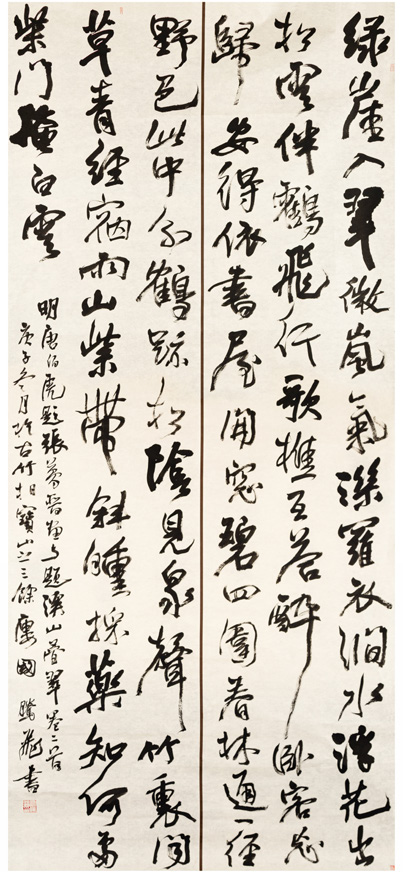 緑崖入翠微嵐氣濕羅衣澗水浮花出
松雲伴鶴飛行歌樵互答醉臥客忘
歸安得依書屋開窓碧四圍春林通一徑
野色此中分鶴跡松陰見泉聲竹裏聞
草青經宿雨山紫帶斜曛採藥知何處
柴門掩白雲
明唐伯虎題張夢晉畫與題溪山疊翠卷二首
庚子冬月於古竹相寶山之三餘廬國書